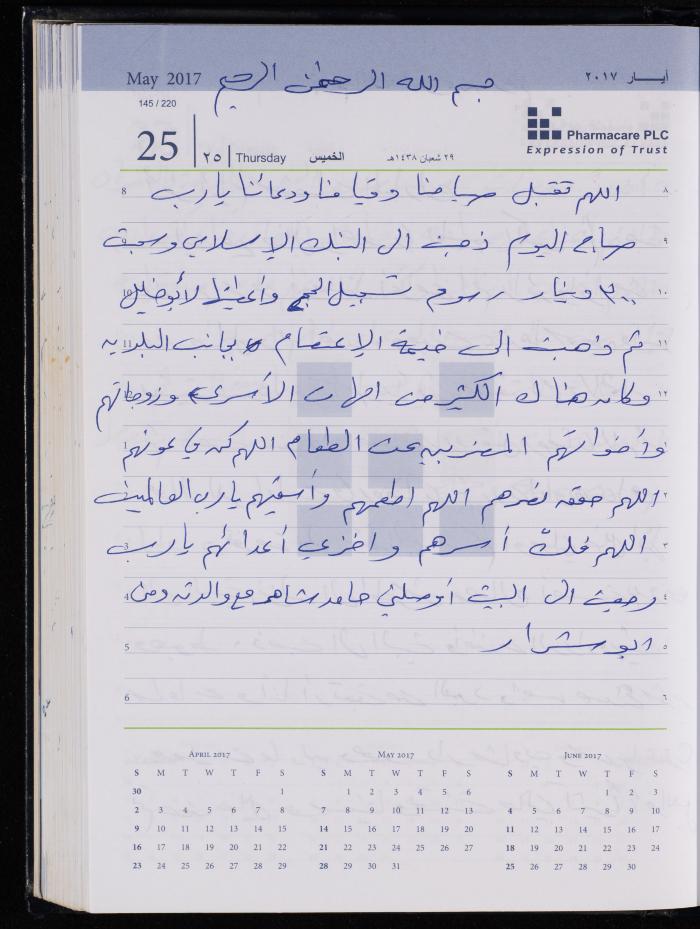 May 2017 بسم الله الرحمن الرحيم أيــار ٢٠١٧
145 / 220
25 ٢٥ Thursday الخميس ٢٩ شعبان ١٤٣٨هـ
Pharmacare PLC
Expression of Trust
8 اللهم تقبل صيامنا وقيامنا ودعائنا يا رب ٨
صباح اليوم ذهبت الى البنك الإسلامي وسحبت ٩
٣٠٠ دينار رسوم تسجيل الحج وأعطيتها لأبو خليل ١٠
ثم ذهبت الى خيمة الإعتصام بجانب البلديه ١١
وكان هناك الكثير من امهات الأسرى وزوجاتهم ١٢
وأخواتهم المضربين عن الطعام اللهم كن في عونهم
اللهم حقق نصرهم اللهم اطعمهم وأسقيهم يارب العالمين ٢
3 اللهم فك أسرهم واخزي أعدائهم يارب ٣
4 رجعت الى البيت أوصلني حامد شاهر مع والدته ومن ٤
5 ابو شرار ٥
6 ٦
April 2017
S M T W T F S
30 1
2 3 4 5 6 7 8
9 10 11 12 13 14 15
16 17 18 19 20 21 22
23 24 25 26 27 28 29
May 2017
S M T W T F S
1 2 3 4 5 6
7 8 9 10 11 12 13
14 15 16 17 18 19 20
21 22 23 24 25 26 27
28 29 30 31
June 2017
S M T W T F S
1 2 3
4 5 6 7 8 9 10
11 12 13 14 15 16 17
18 19 20 21 22 23 24
25 26 27 28 29 30